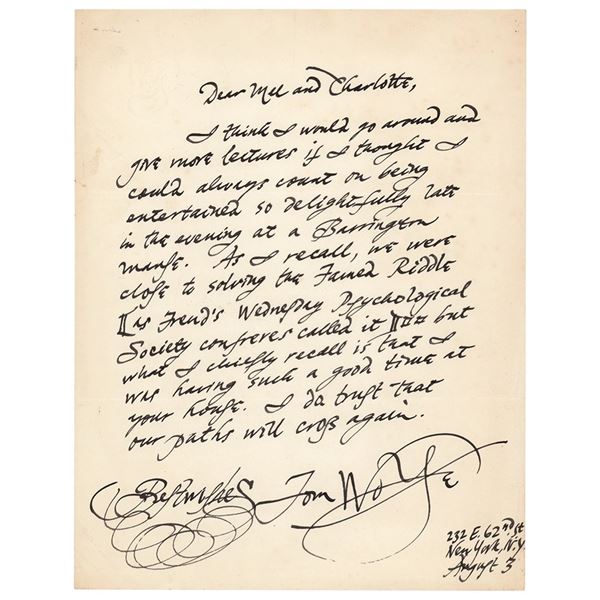 Dear Mel and Charlotte,
I think I would go around and
give more lectures if I thought I
could always count on being
entertained so delightfully late
in the evening at a Barrington
manse. As I recall, we were
close to solving the Famed Riddle
[as Freud's Wednesday Psychological
Society confreres called it] but
what I chiefly recall is that I
was having such a good time at
your house. I do trust that
our paths will cross again.
Best wishes Tom Wolfe
232 E. 62nd St
New York, N.Y.
August 3